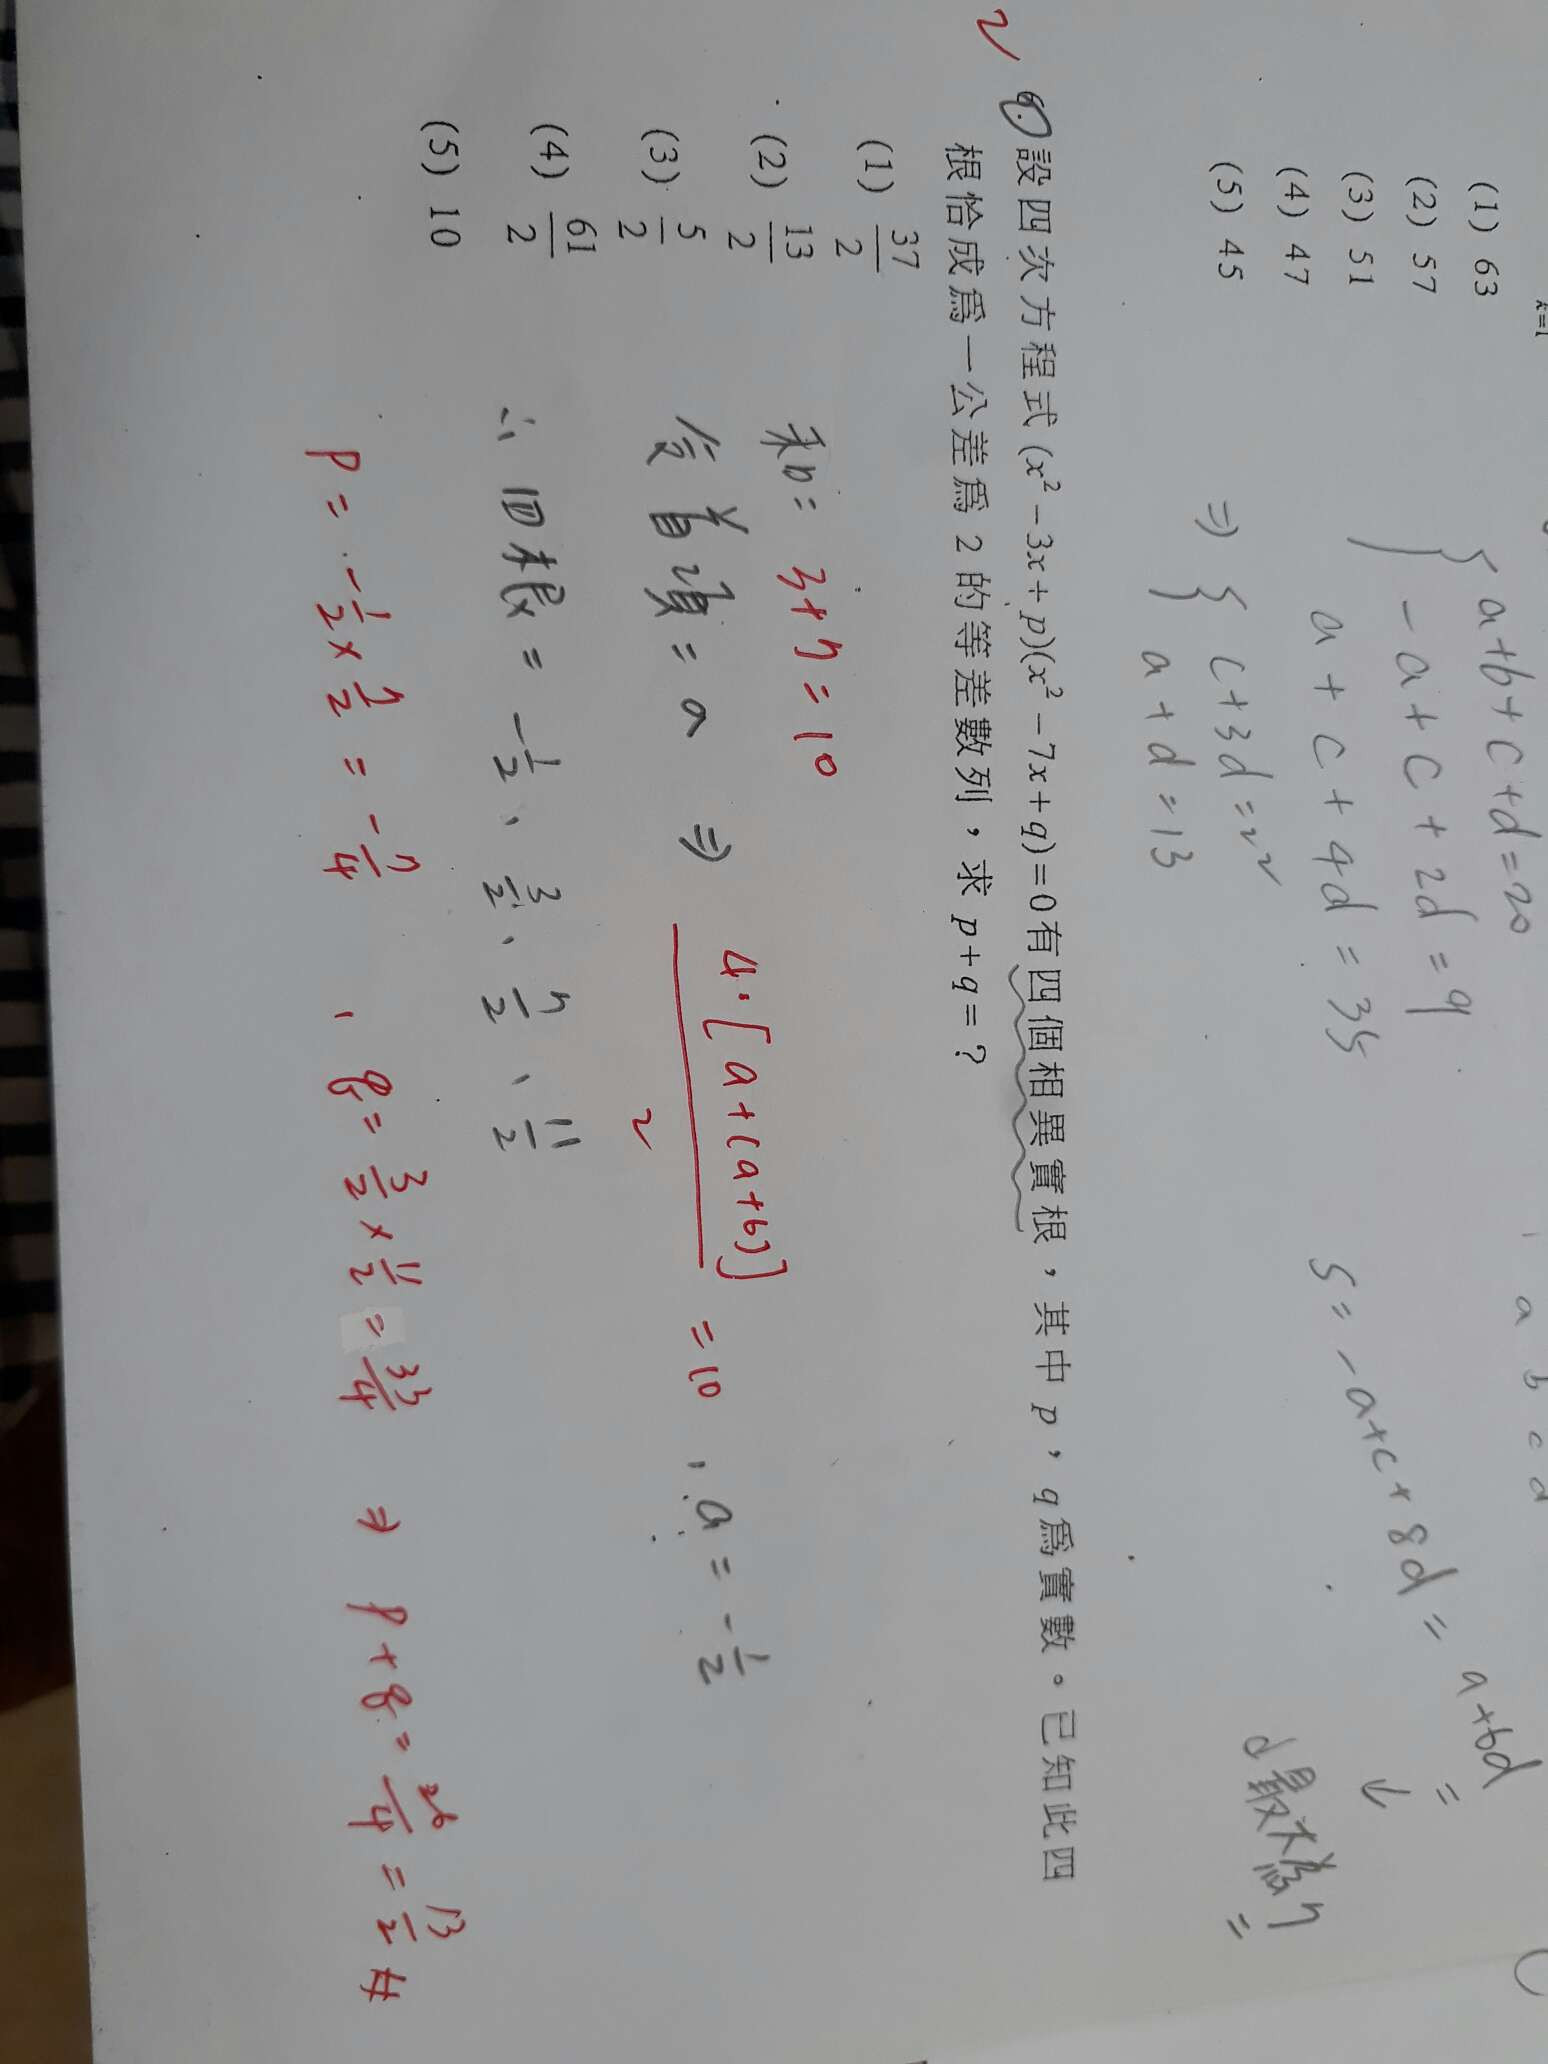 k=1
(1) 63
(2) 57
(3) 51
(4) 47
(5) 45
a b c d
a+b+c+d=20
-a+c+2d=9
a+c+4d=35
⇒ { c+3d=22
a+d=13
5=-a+c+8d= a+6d
=
↓
d最大為7
=
2 9. 設四次方程式 (x²-3x+p)(x²-7x+q)=0有四個相異實根,其中 p,q 爲實數。已知此四
根恰成爲一公差爲 2 的等差數列,求 p+q=?
(1) 37/2
(2) 13/2
(3) 5/2
(4) 61/2
(5) 10
和b= 3+7=10
令首項=a ⇒ 4·[a+(a+6)]/2 =10 , a=-1/2
∴四根= -1/2、3/2、7/2、11/2
P= -1/2 × 7/2 = -7/4 , q= 3/2 × 11/2 = 33/4 ⇒ P+q= 26/4 = 13/2 #